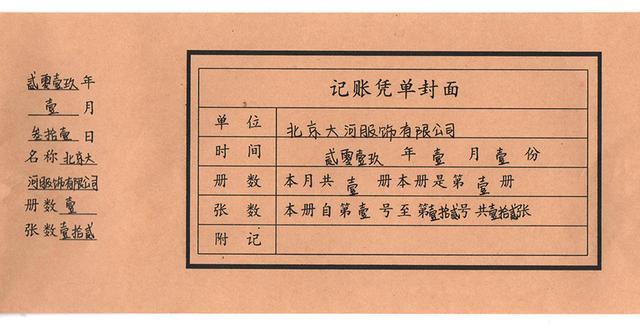 贰零壹玖年
壹月
叁拾壹日
名称北京大
河服饰有限公司
册数壹
张数壹拾贰
记账凭单封面
单位 北京大河服饰有限公司
时间 贰零壹玖年壹月壹份
册数 本月共壹册本册是第壹册
张数 本册自第壹号至第壹拾贰号共壹拾贰张
附记